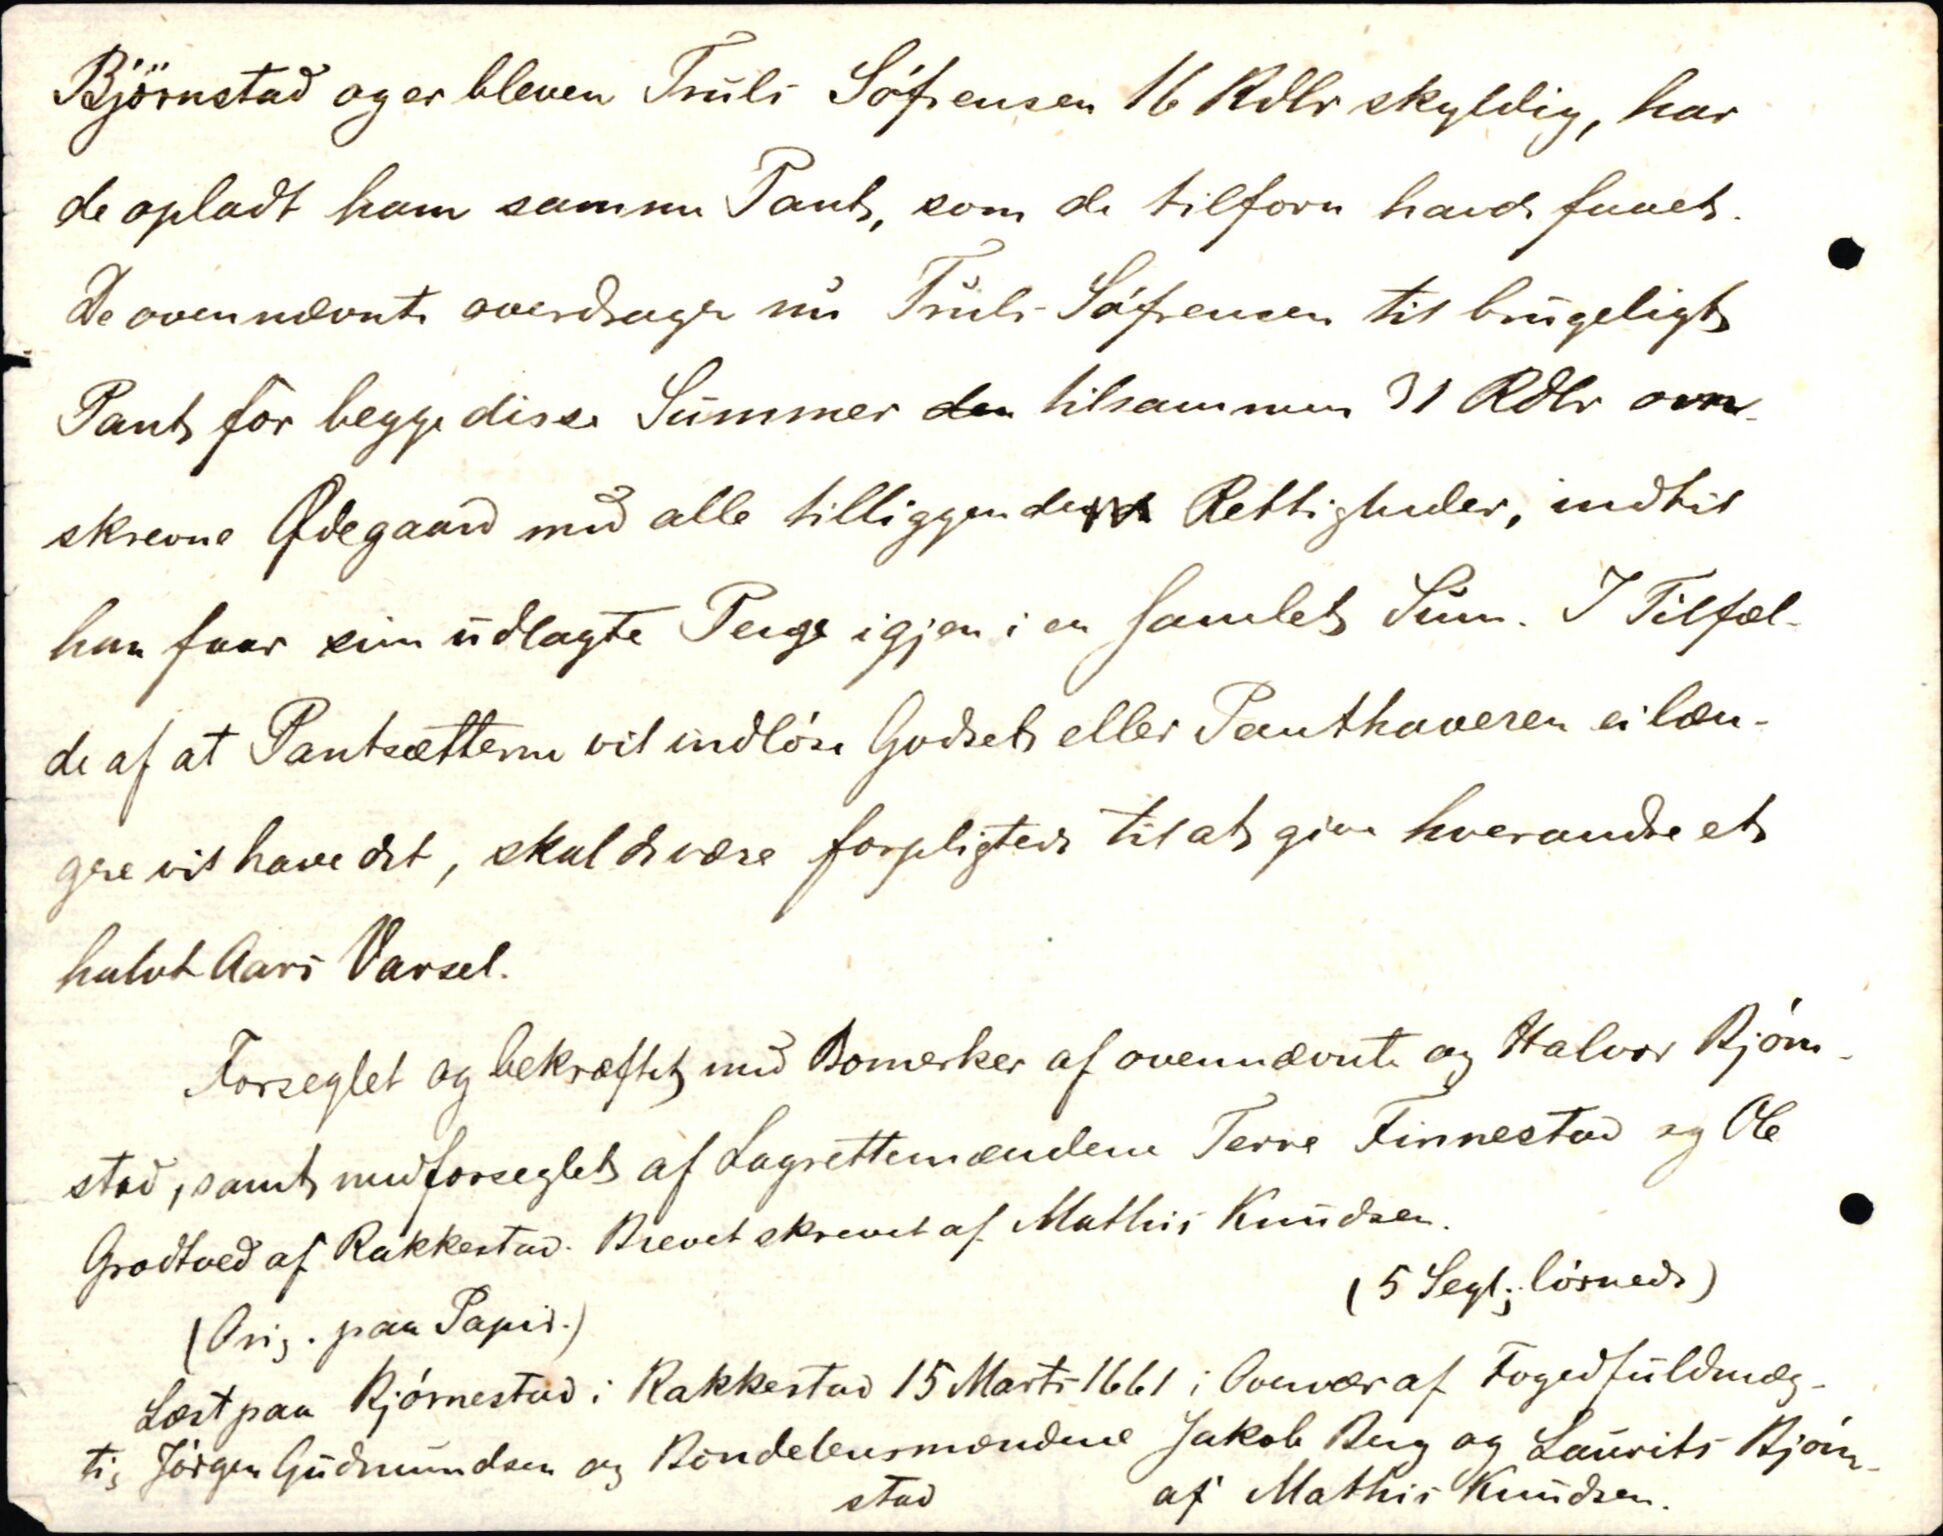 Björnstad og er bleven Truls Söfrensen 16 Rdlr skyldig, har
de opladt ham samme Pant, som de tilforn havde faaet.
De ovennævnte overdrager nu Truls Söfrensen til brugeligt
Pant for begge disse Summer den tilsammen 31 Rdlr oven-
skrevne Ødegaard med alle tilliggende Rettigheder, indtil
han faar sine udlagte Penge igjen i en samlet Sum. I Tilfæl-
de af at Pantsætterne vil indlöse Godset eller Panthaveren ei læn-
gere vil have det, skal de være forpligtede til at give hverandre et
halvt Aars Varsel.
Forseglet og bekræftet med Bomerker af ovennævnte og Halvor Björn-
stad, samt medforseglet af Lagrettemændene Terre Finnestad og Ole
Grodtved af Rakkestad. Brevet skrevet af Mathis Knudsen.
(5 Segl; lösnede)
(Orig. paa Papir.)
Læst paa Björnestad i Rakkestad 15 Marts 1661 i Overvær af Fogedfuldmæg-
tig Jörgen Gudmundsen og Bondelensmændene Jakob Berg og Laurits Björn-
stad af Mathis Knudsen.